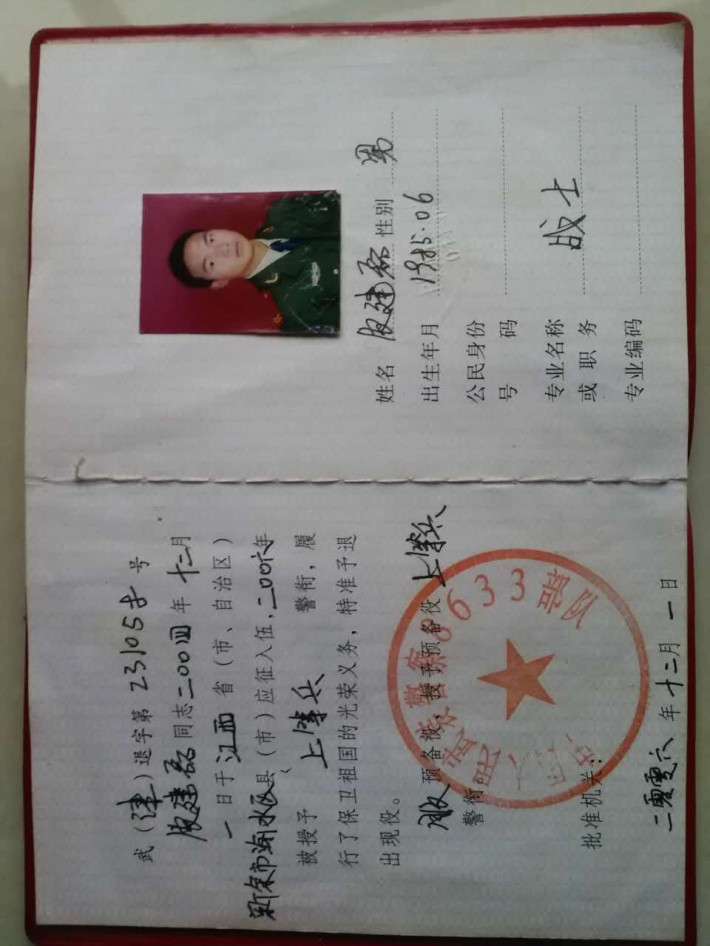 姓名 皮建磊 性别 男
出生年月 1985.06
公民身份
号 码
专业名称
或 职 务 战士
专业编码
武（津）退字第 231058 号
皮建磊 同志二00四 年 十二月
一 日于 江西 省（市、自治区）
新余市渝水区县（市）应征入伍，二00六年
被授予 上等兵 警衔，履
行了保卫祖国的光荣义务，特准予退
出现役。
服预备役，授予预备役 上等兵
警衔。
批准机关：
中国人民武装警察8633部队
二零零六 年 十二 月 一 日